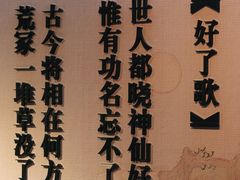 【好了歌】
世人都晓神仙好
惟有功名忘不了
古今将相在何方
荒冢一堆草没了